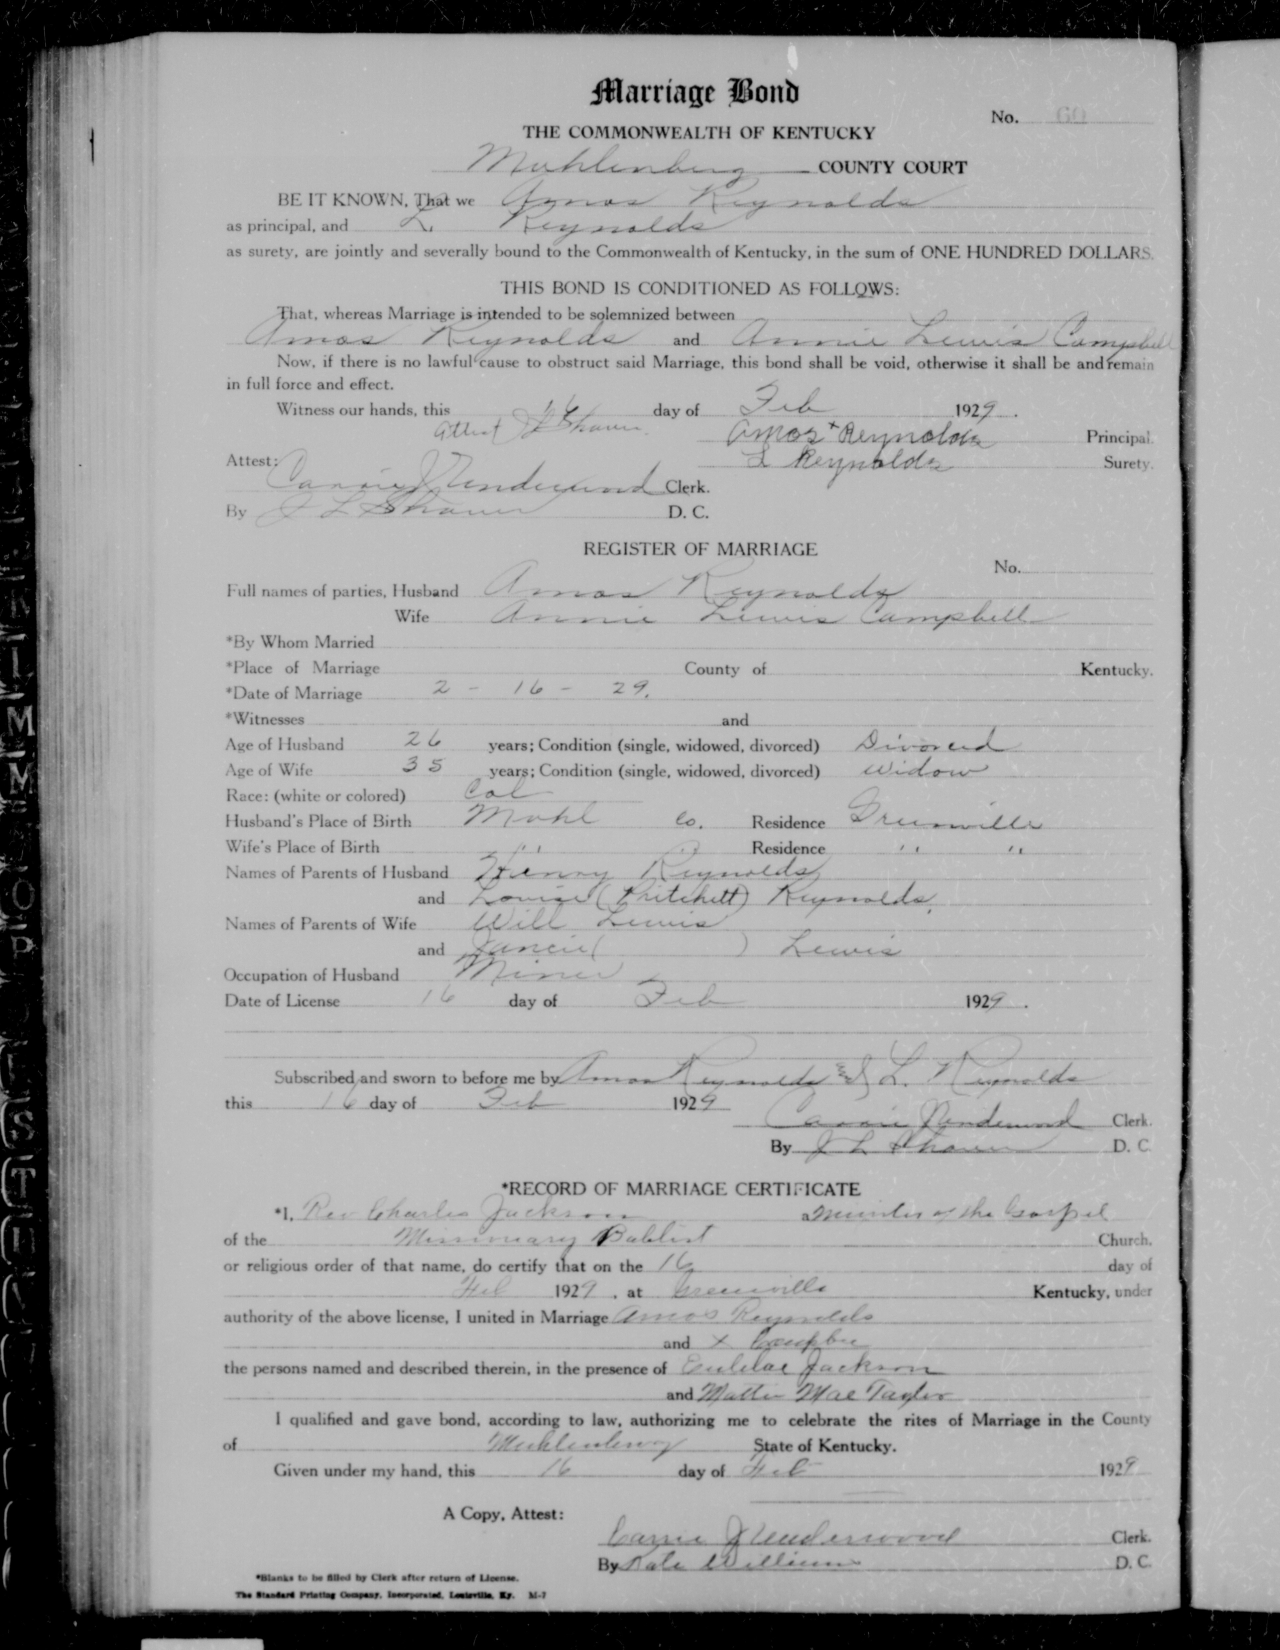 Marriage Bond
No. 60
THE COMMONWEALTH OF KENTUCKY
Muhlenberg COUNTY COURT
BE IT KNOWN, That we Amos Reynolds
as principal, and L. Reynolds
as surety, are jointly and severally bound to the Commonwealth of Kentucky, in the sum of ONE HUNDRED DOLLARS.
THIS BOND IS CONDITIONED AS FOLLOWS:
That, whereas Marriage is intended to be solemnized between
Amos Reynolds and Annie Lewis Campbell
Now, if there is no lawful cause to obstruct said Marriage, this bond shall be void, otherwise it shall be and remain
in full force and effect.
Witness our hands, this 16 day of Feb 1929.
Attest J L Shaver Amos + Reynolds Principal.
L Reynolds Surety.
Attest: Carrie J Underwood Clerk.
By J L Shaver D. C.
REGISTER OF MARRIAGE
No.
Full names of parties, Husband Amos Reynolds
Wife Annie Lewis Campbell
*By Whom Married
*Place of Marriage County of Kentucky.
*Date of Marriage 2 - 16 - 29.
*Witnesses and
Age of Husband 26 years; Condition (single, widowed, divorced) Divorced
Age of Wife 35 years; Condition (single, widowed, divorced) Widow
Race: (white or colored) Col
Husband's Place of Birth Muhl Co. Residence Greenville
Wife's Place of Birth " " Residence " "
Names of Parents of Husband Henry Reynolds
and Louise (Pritchett) Reynolds.
Names of Parents of Wife Will Lewis
and ( ) Lewis
Occupation of Husband Miner
Date of License 16 day of Feb 1929.
Subscribed and sworn to before me by Amos Reynolds & L. Reynolds
this 16 day of Feb 1929
Carrie J Underwood Clerk.
By J L Shaver D. C
*RECORD OF MARRIAGE CERTIFICATE
*I, Rev Charles Jackson a Minister of the Gospel
of the Missionary Babtist Church.
or religious order of that name, do certify that on the 16 day of
Feb 1929, at Greenville Kentucky, under
authority of the above license, I united in Marriage Amos Reynolds
and X
the persons named and described therein, in the presence of Jackson
and Mattie Mae Taylor
I qualified and gave bond, according to law, authorizing me to celebrate the rites of Marriage in the County
of Muhlenberg State of Kentucky.
Given under my hand, this 16 day of Feb 1929
A Copy, Attest:
Carrie J Underwood Clerk.
By Kate Williams D. C.
*Blanks to be filled by Clerk after return of License.
The Standard Printing Company, Incorporated, Louisville, Ky. M-7